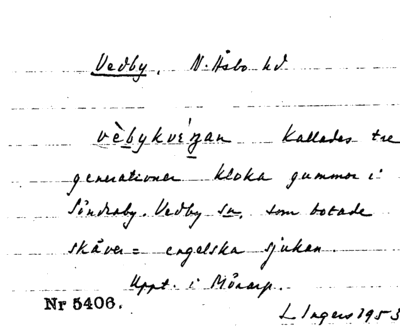 Vedby. N. Åsbo hd
vèbykvéŋan kallades tre
generationer kloka gummor i
Söndraby, Vedby sn, som botade
skåver = engelska sjukan.
Uppt. i Månarp.
Nr 5406.
L Ingers 1953